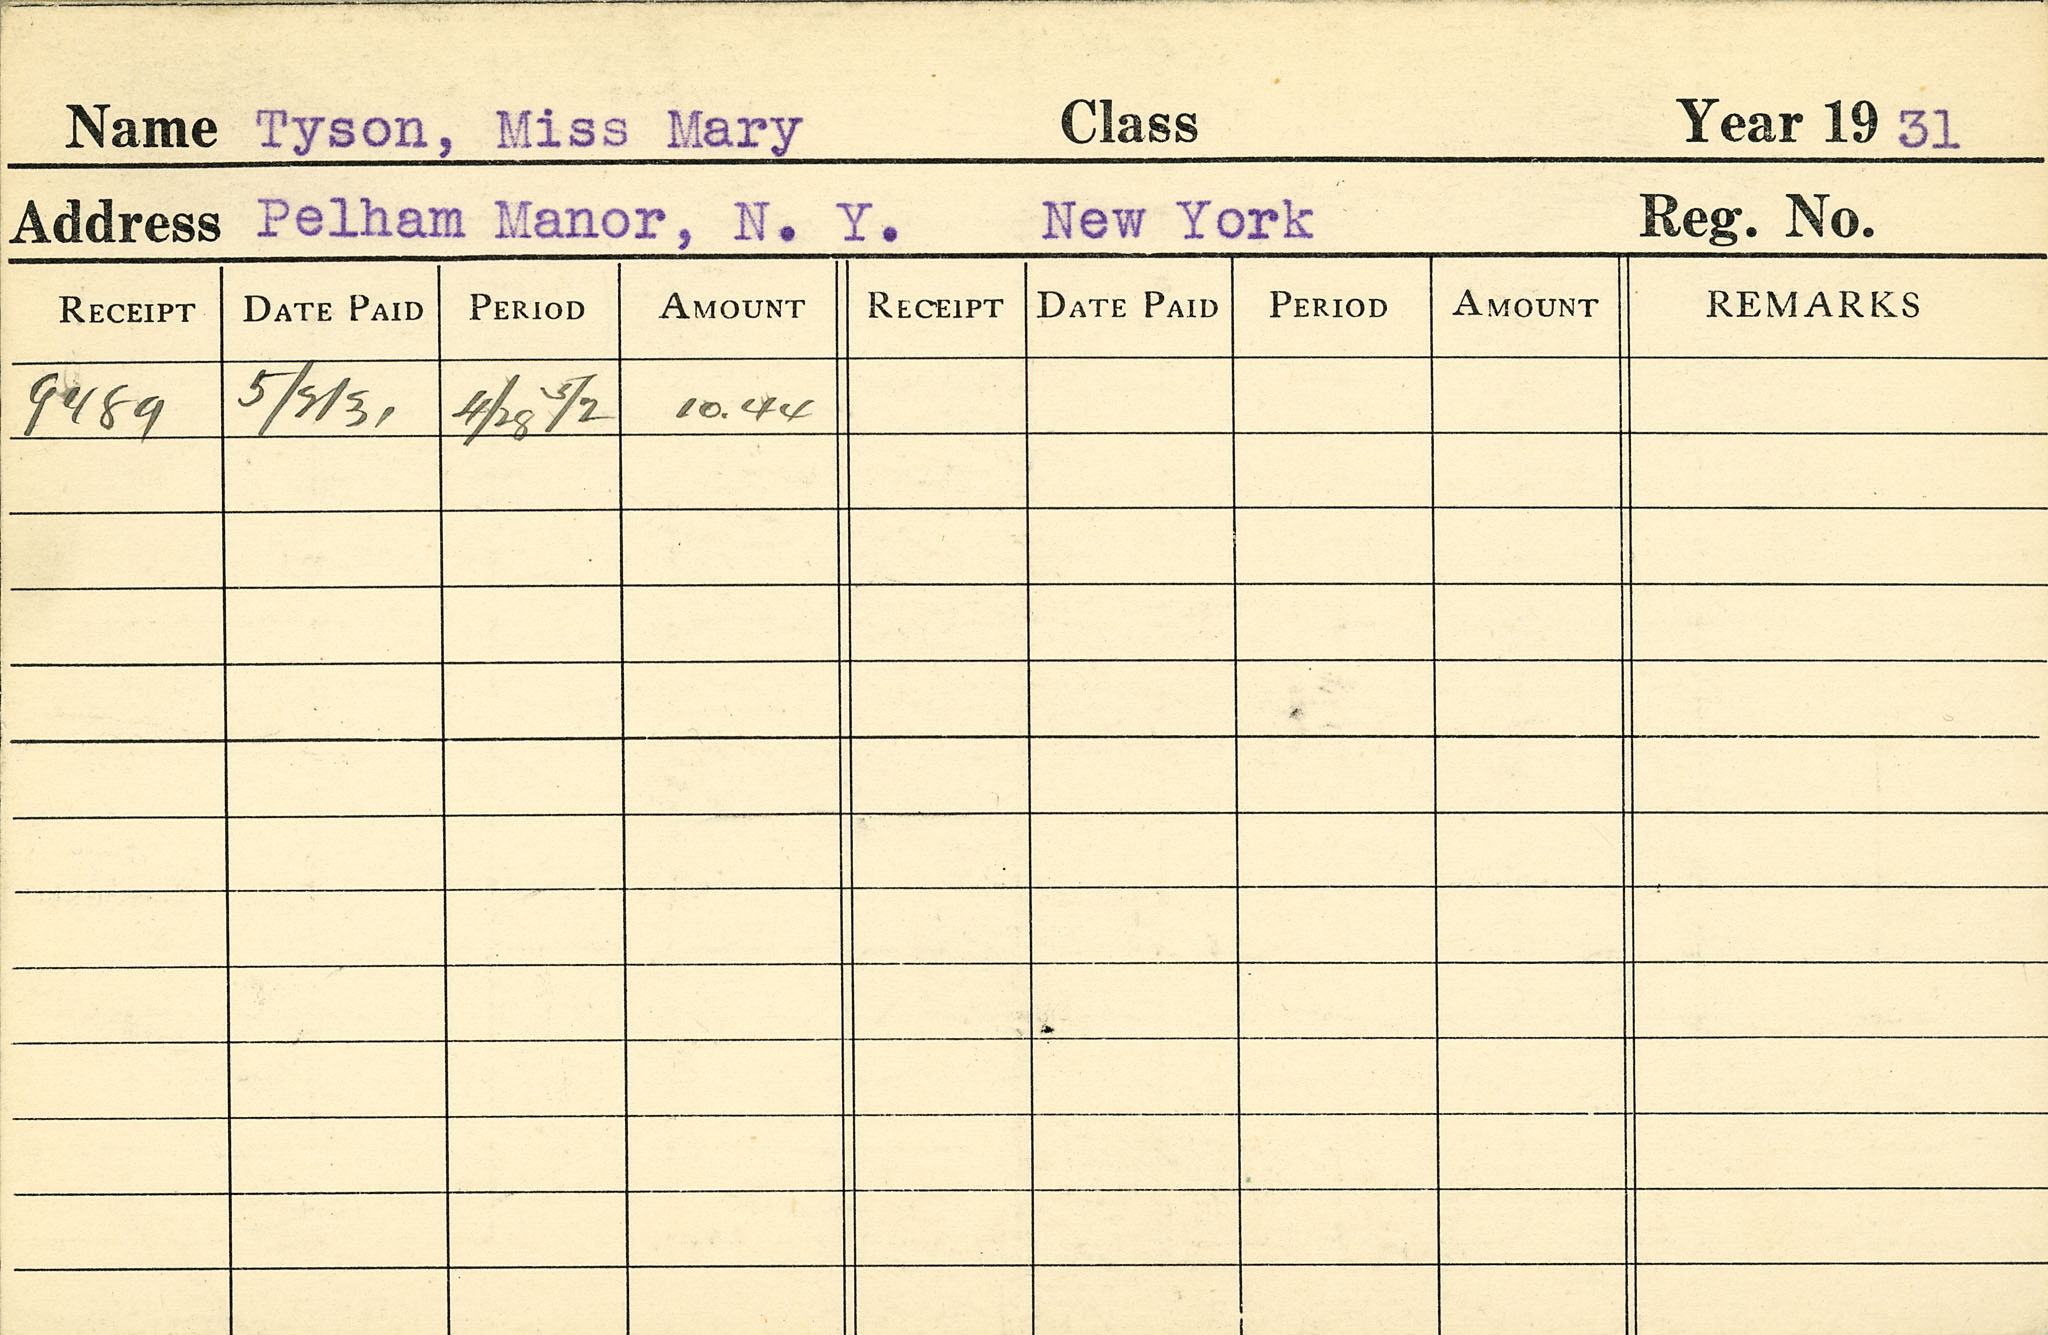 Name Tyson, Miss Mary Class Year 19 31
Address Pelham Manor, N. Y. New York Reg. No.
RECEIPT DATE PAID PERIOD AMOUNT RECEIPT DATE PAID PERIOD AMOUNT REMARKS
9489 5/5/31 4/28 5/2 10.44